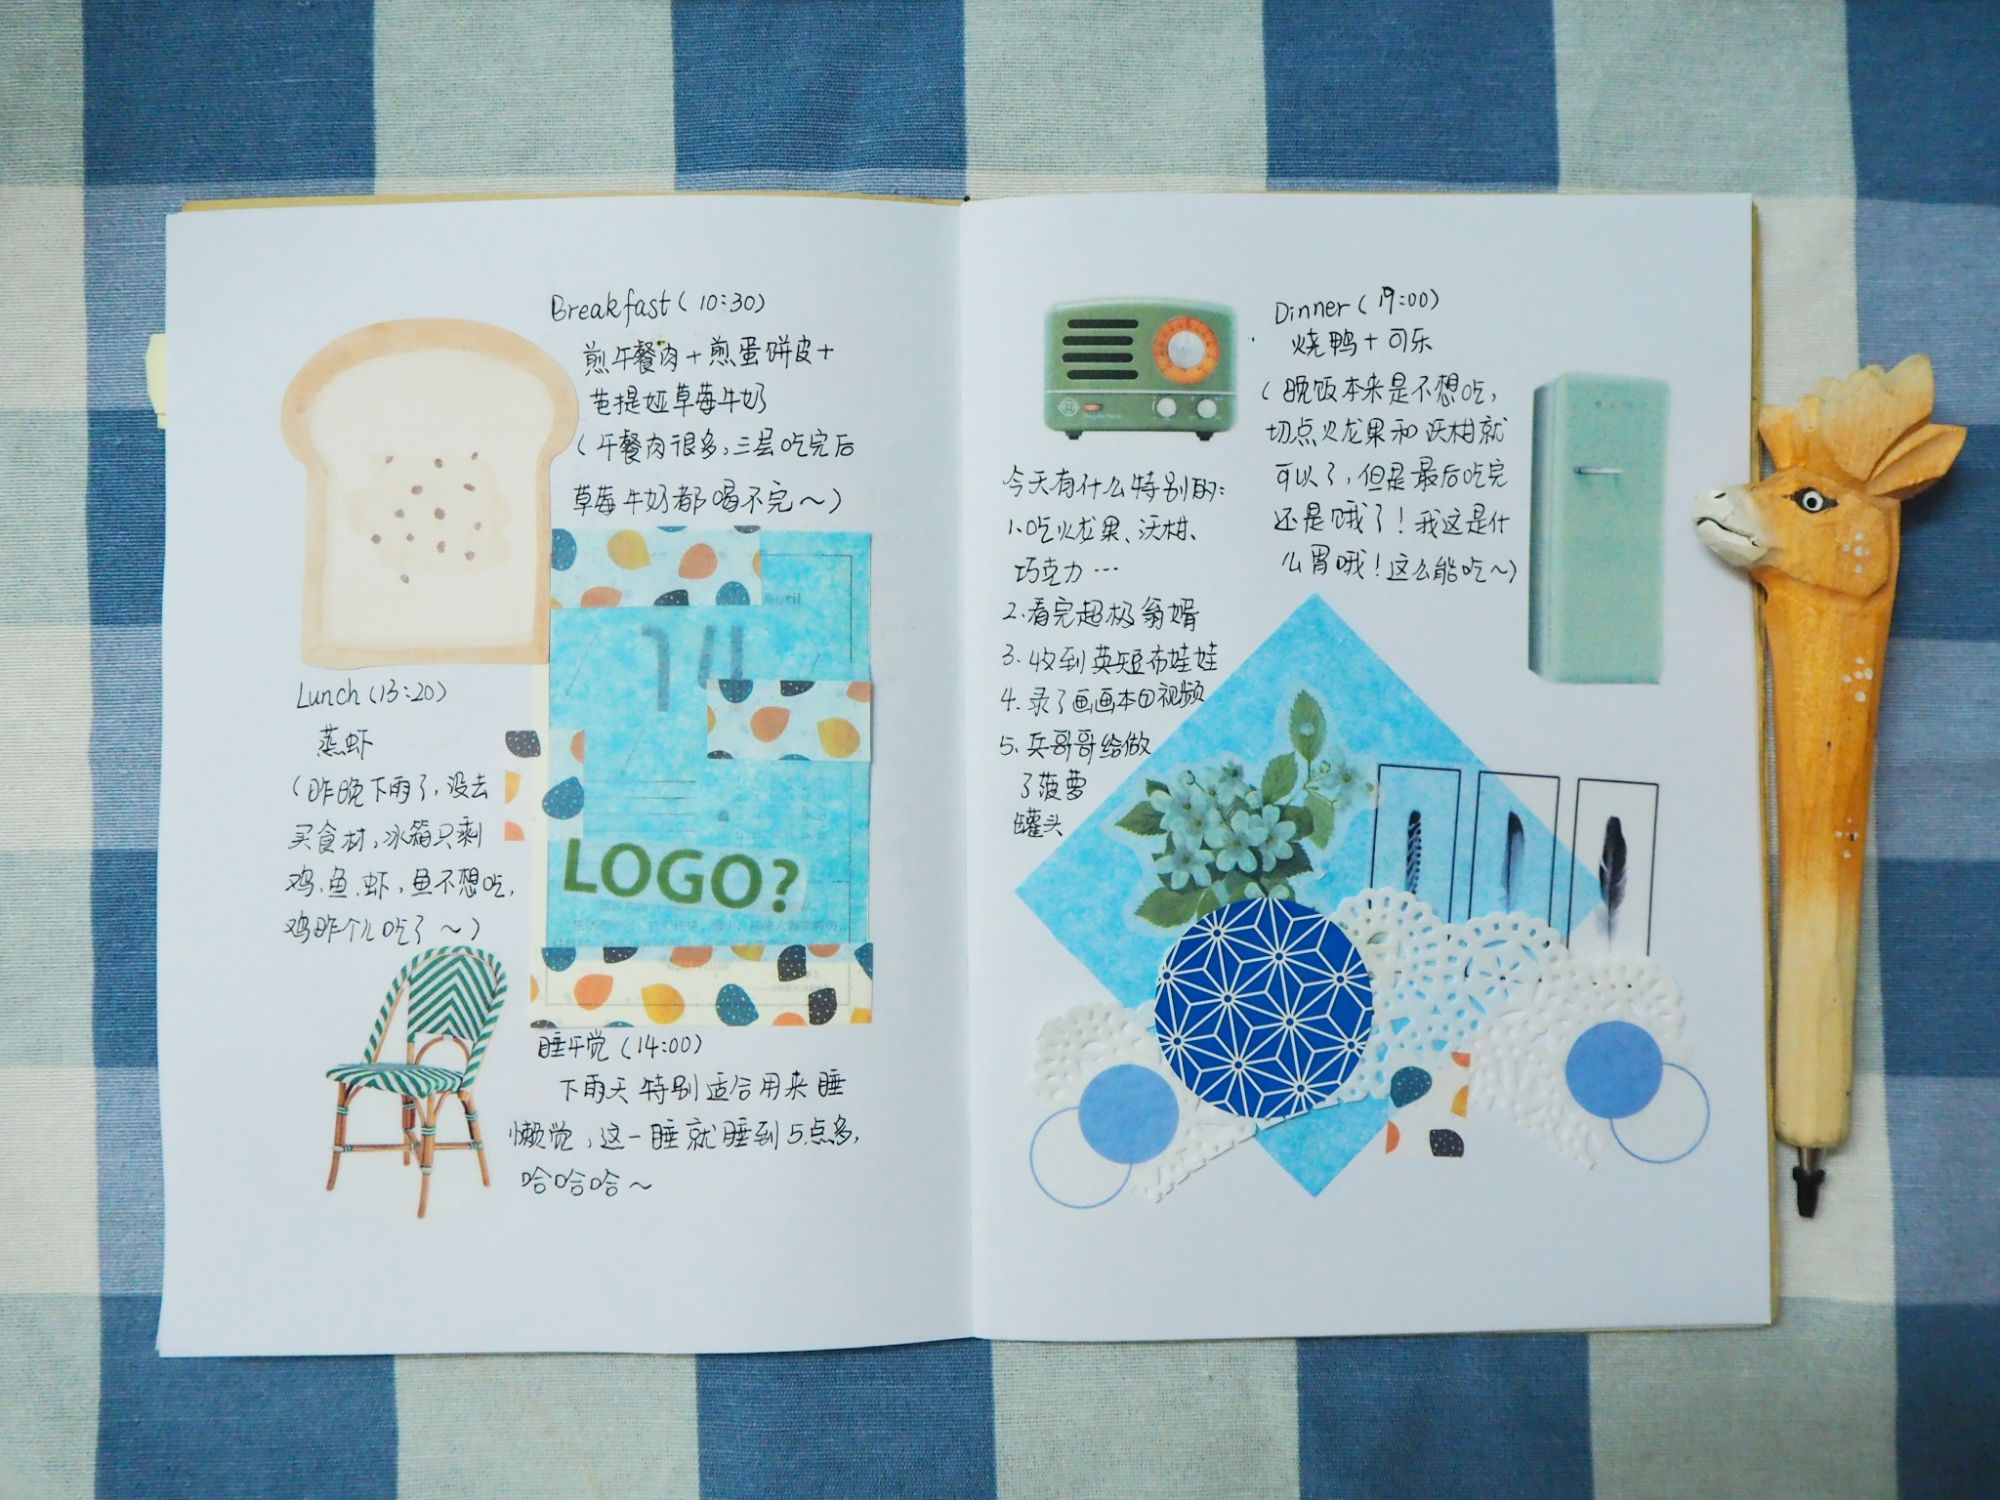 Breakfast(10:30)
煎午餐肉+煎蛋饼皮+
芭提娅草莓牛奶
(午餐肉很多,三层吃完后
草莓牛奶都喝不完~)
14
LOGO?
Lunch(13:20)
蒸虾
(昨晚下雨了,没去
买食材,冰箱只剩
鸡、鱼、虾,鱼不想吃,
鸡昨个儿吃了~)
睡午觉(14:00)
下雨天特别适合用来睡
懒觉,这一睡就睡到5点多,
哈哈哈~
今天有什么特别的:
1.吃火龙果、沃柑、
巧克力…
2.看完超极翁婿
3.收到英短布娃娃
4.录了画画本的视频
5.兵哥哥给做
了菠萝
罐头
Dinner(19:00)
烧鸭+可乐
(晚饭本来是不想吃,
切点火龙果和沃柑就
可以了,但是最后吃完
还是饿了!我这是什
么胃哦!这么能吃~)